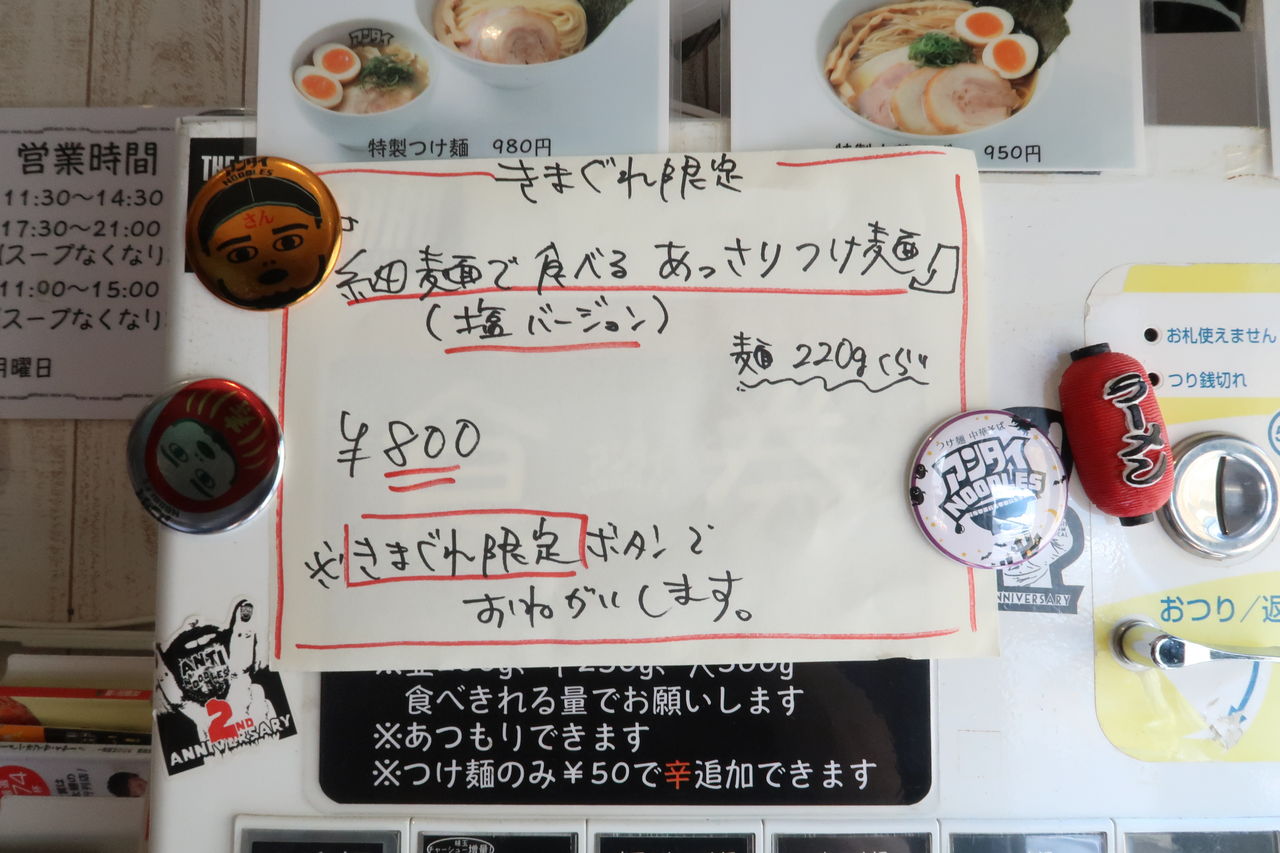 特製つけ麺 980円
950円
営業時間
11:30〜14:30
17:30〜21:00
(スープなくなり
11:00〜15:00
(スープなくなり
月曜日
THE
アンタイ
NOODLES
さん
きまぐれ限定
細麺で食べる あっさりつけ麺♪
(塩バージョン)
麺 220gくらい
¥800
※きまぐれ限定ボタンで
おねがいします。
お札使えません
つり銭切れ
ラーメン
つけ麺 中華そば
アンタイ
NOODLES
ANNIVERSARY
おつり/返
ANTI
NOODLES
2ND
ANNIVERSARY
食べきれる量でお願いします
※あつもりできます
※つけ麺のみ¥50で辛追加できます
チャーシュー増量!